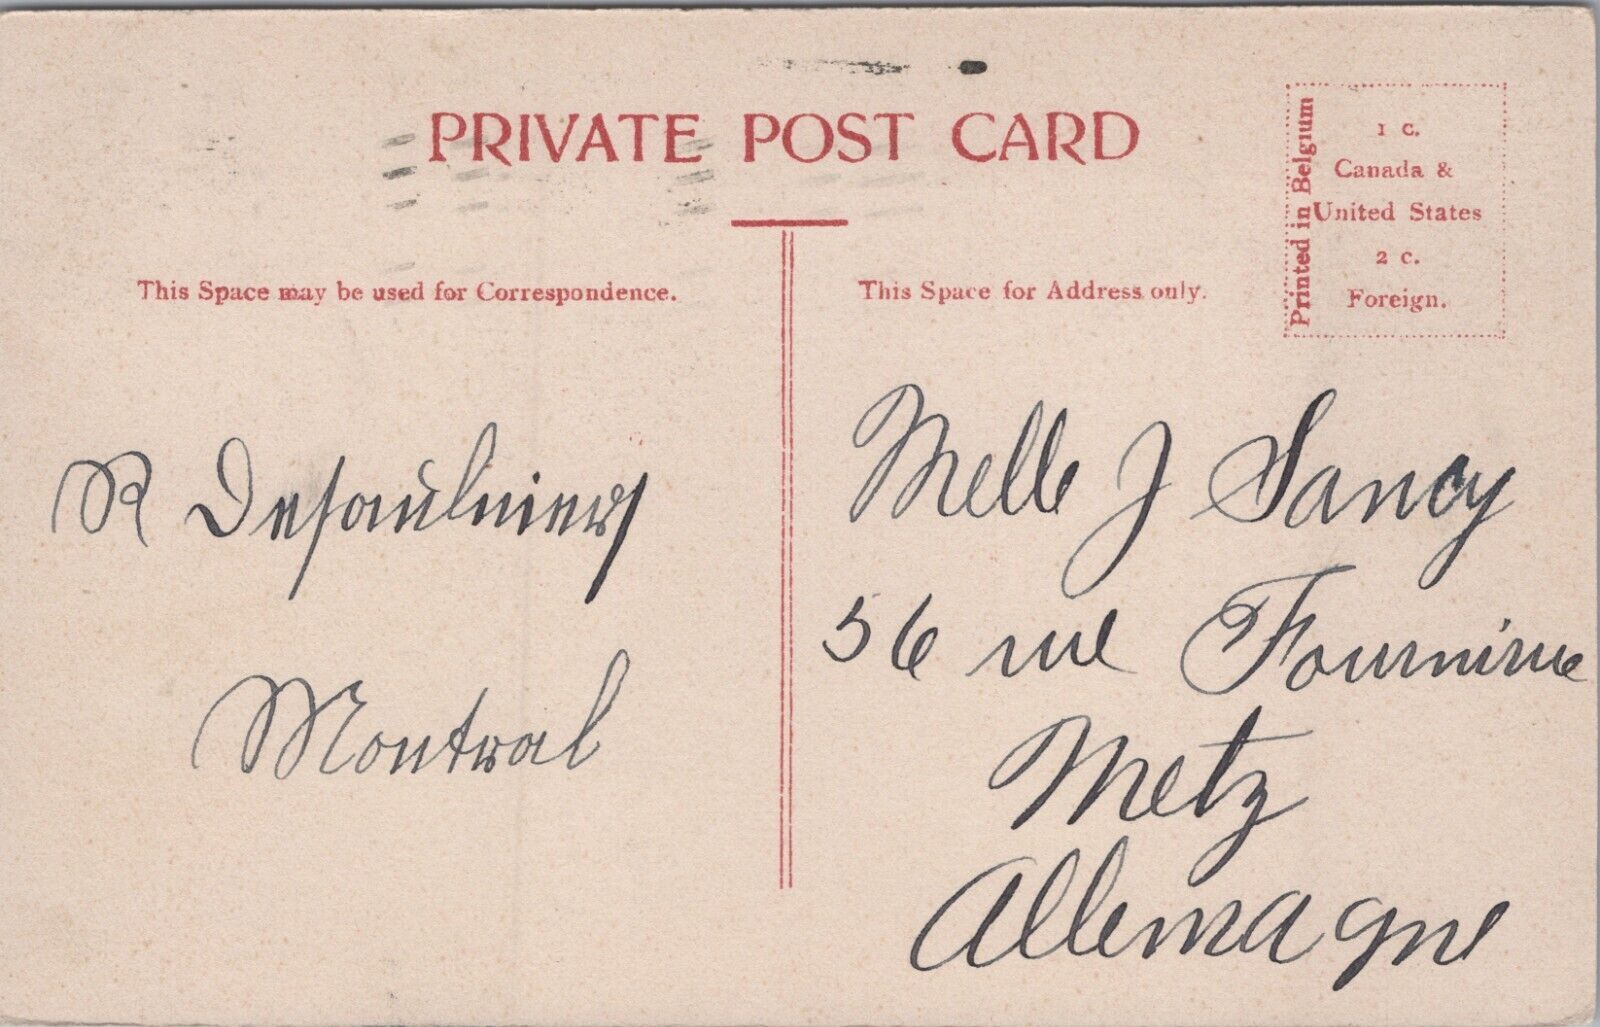 PRIVATE POST CARD
Printed in Belgium
1 C.
Canada &
United States
2 C.
Foreign.
This Space may be used for Correspondence.
This Space for Address only.
R Desaulniers
Montreal
Melle J Sancy
56 rue Fournirue
Metz
Allemagne